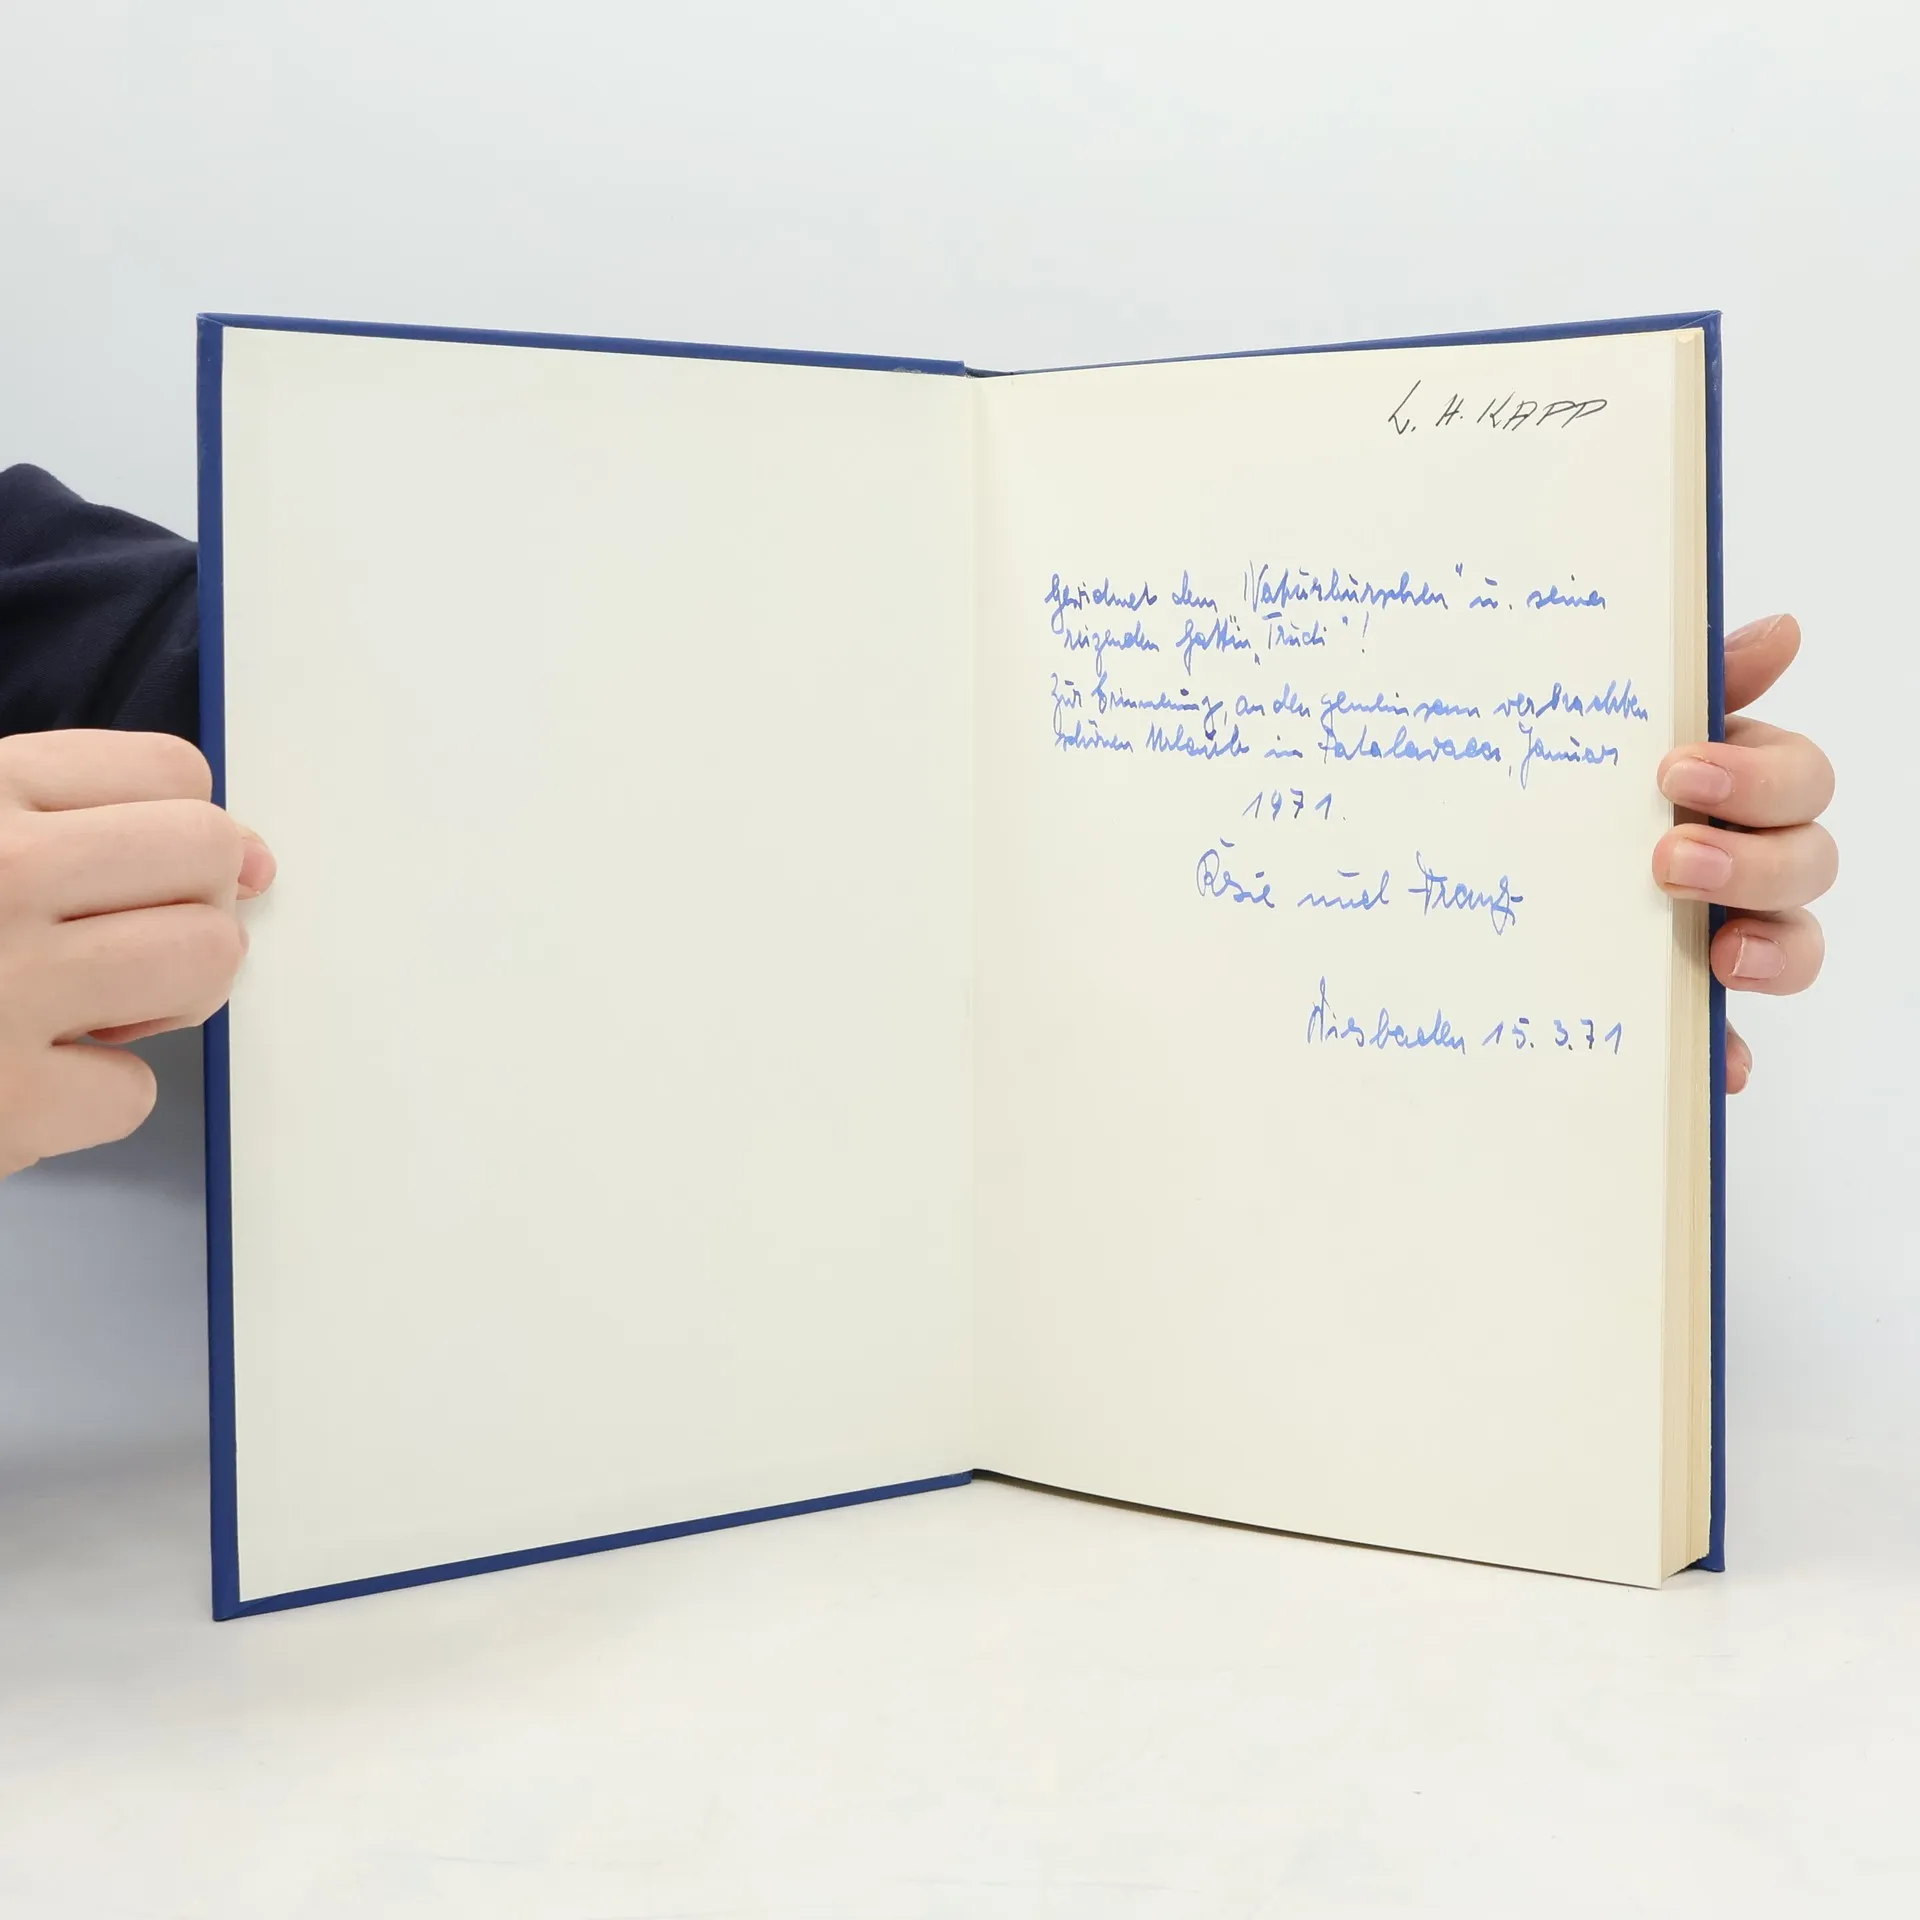 L. H. KAPP
Gewidmet dem „Naturburschen" u. seiner
reizenden Gattin „Trudi"!
Zur Erinnerung, an den gemeinsam verbrachten
schönen Urlaub in Patalavaca, Januar
1971.
Resie und Franz
Wiesbaden 15. 3. 71